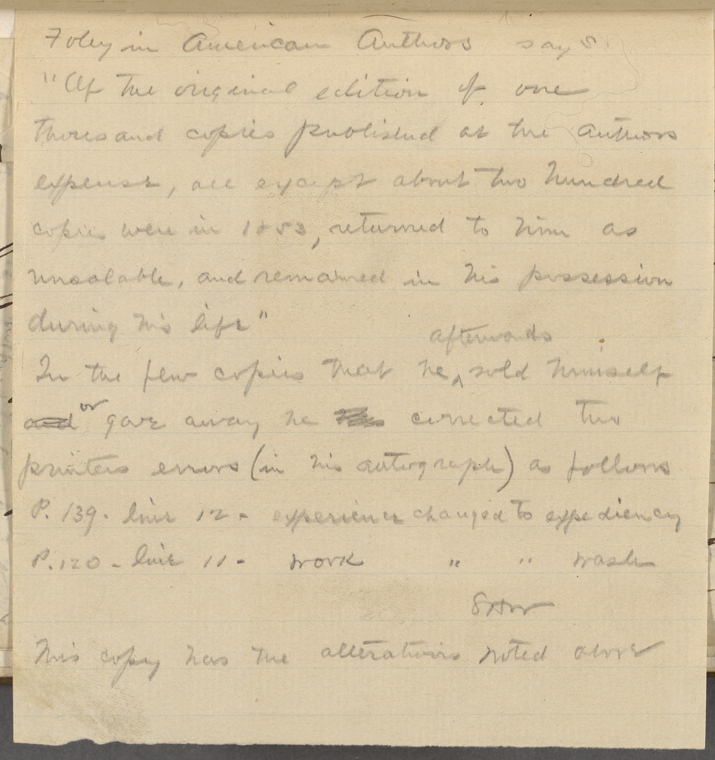 Foley in American Authors says
"Of the original edition of one
thousand copies published at the authors
expense, all except about two hundred
copies were in 1853, returned to him as
unsalable, and remained in his possession
during his life"
afterwards
In the few copies that he ^ sold himself
and or gave away he has corrected two
printers errors (in his autograph) as follows
P. 139. line 12 - experience changed to expediency
P. 120 - line 11 - work " " wash
This copy has the alterations noted above